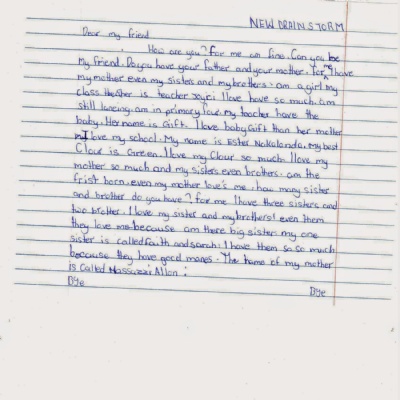 NEW BRAIN STORM
Dear my friend
How are you? For me am fine. Can you be
My friend. Do you have your father and your mother. For me I have
my mother even my sisters and my brothers. am a girl my
class theaher is teacher joyci I love have so much. am
still lancing. am in primary four. my teacher have the
baby. Her name is Gift. I love baby Gift than her mother
I love my school. My name is Ester Nakalanda. My best
Clour is Green. I love my Clour so much. I love my
mother so much and my sisters even brothers. am the
frist born. even my mother love's me. how many sister
and brother do you have? For me I have three sisters and
two brother. I love my sister and my brothers! even them
they love me because am there big sister. my one
sister is called faith and sarah. I have them so so much
because they have good manes. The name of my mother
is Called Nassuzzi Allen.
Bye
Bye